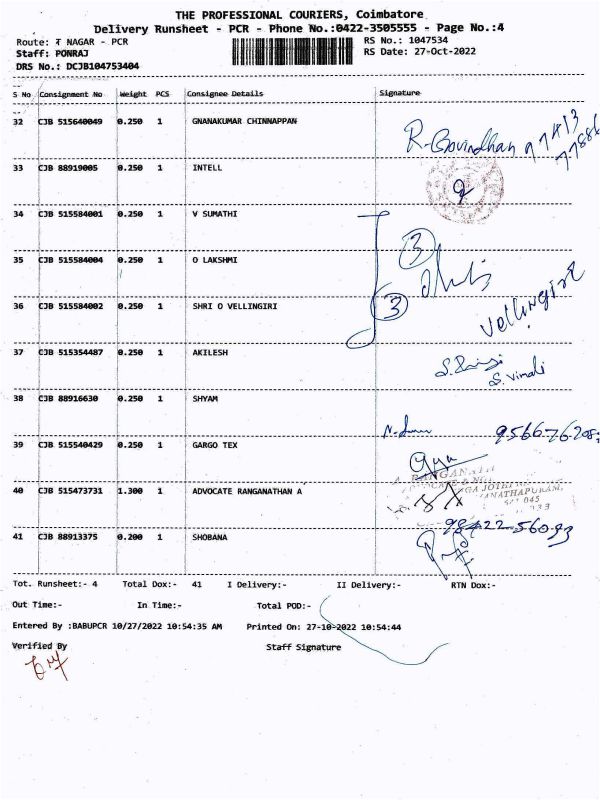 THE PROFESSIONAL COURIERS, Coimbatore
Delivery Runsheet - PCR - Phone No.:0422-3505555 - Page No.:4
Route: T NAGAR - PCR RS No.: 1047534
Staff: PONRAJ RS Date: 27-Oct-2022
DRS No.: DCJB104753404
S No Consignment No Weight PCS Consignee Details Signature
32 CJB 515640049 0.250 1 GNANAKUMAR CHINNAPPAN R. Govindhan 97413
77886
33 CJB 88919005 0.250 1 INTELL
34 CJB 515584001 0.250 1 V SUMATHI
35 CJB 515584004 0.250 1 O LAKSHMI 3
36 CJB 515584002 0.250 1 SHRI O VELLINGIRI 3 Vellingiri
37 CJB 515354487 0.250 1 AKILESH
S. Vimali
38 CJB 88916630 0.250 1 SHYAM
95667-76208
39 CJB 515540429 0.250 1 GARGO TEX
RANGANATH
40 CJB 515473731 1.300 1 ADVOCATE RANGANATHAN A
98422-56093
41 CJB 88913375 0.200 1 SHOBANA
Tot. Runsheet:- 4 Total Dox:- 41 I Delivery:- II Delivery:- RTN Dox:-
Out Time:- In Time:- Total POD:-
Entered By :BABUPCR 10/27/2022 10:54:35 AM Printed On: 27-10-2022 10:54:44
Verified By Staff Signature